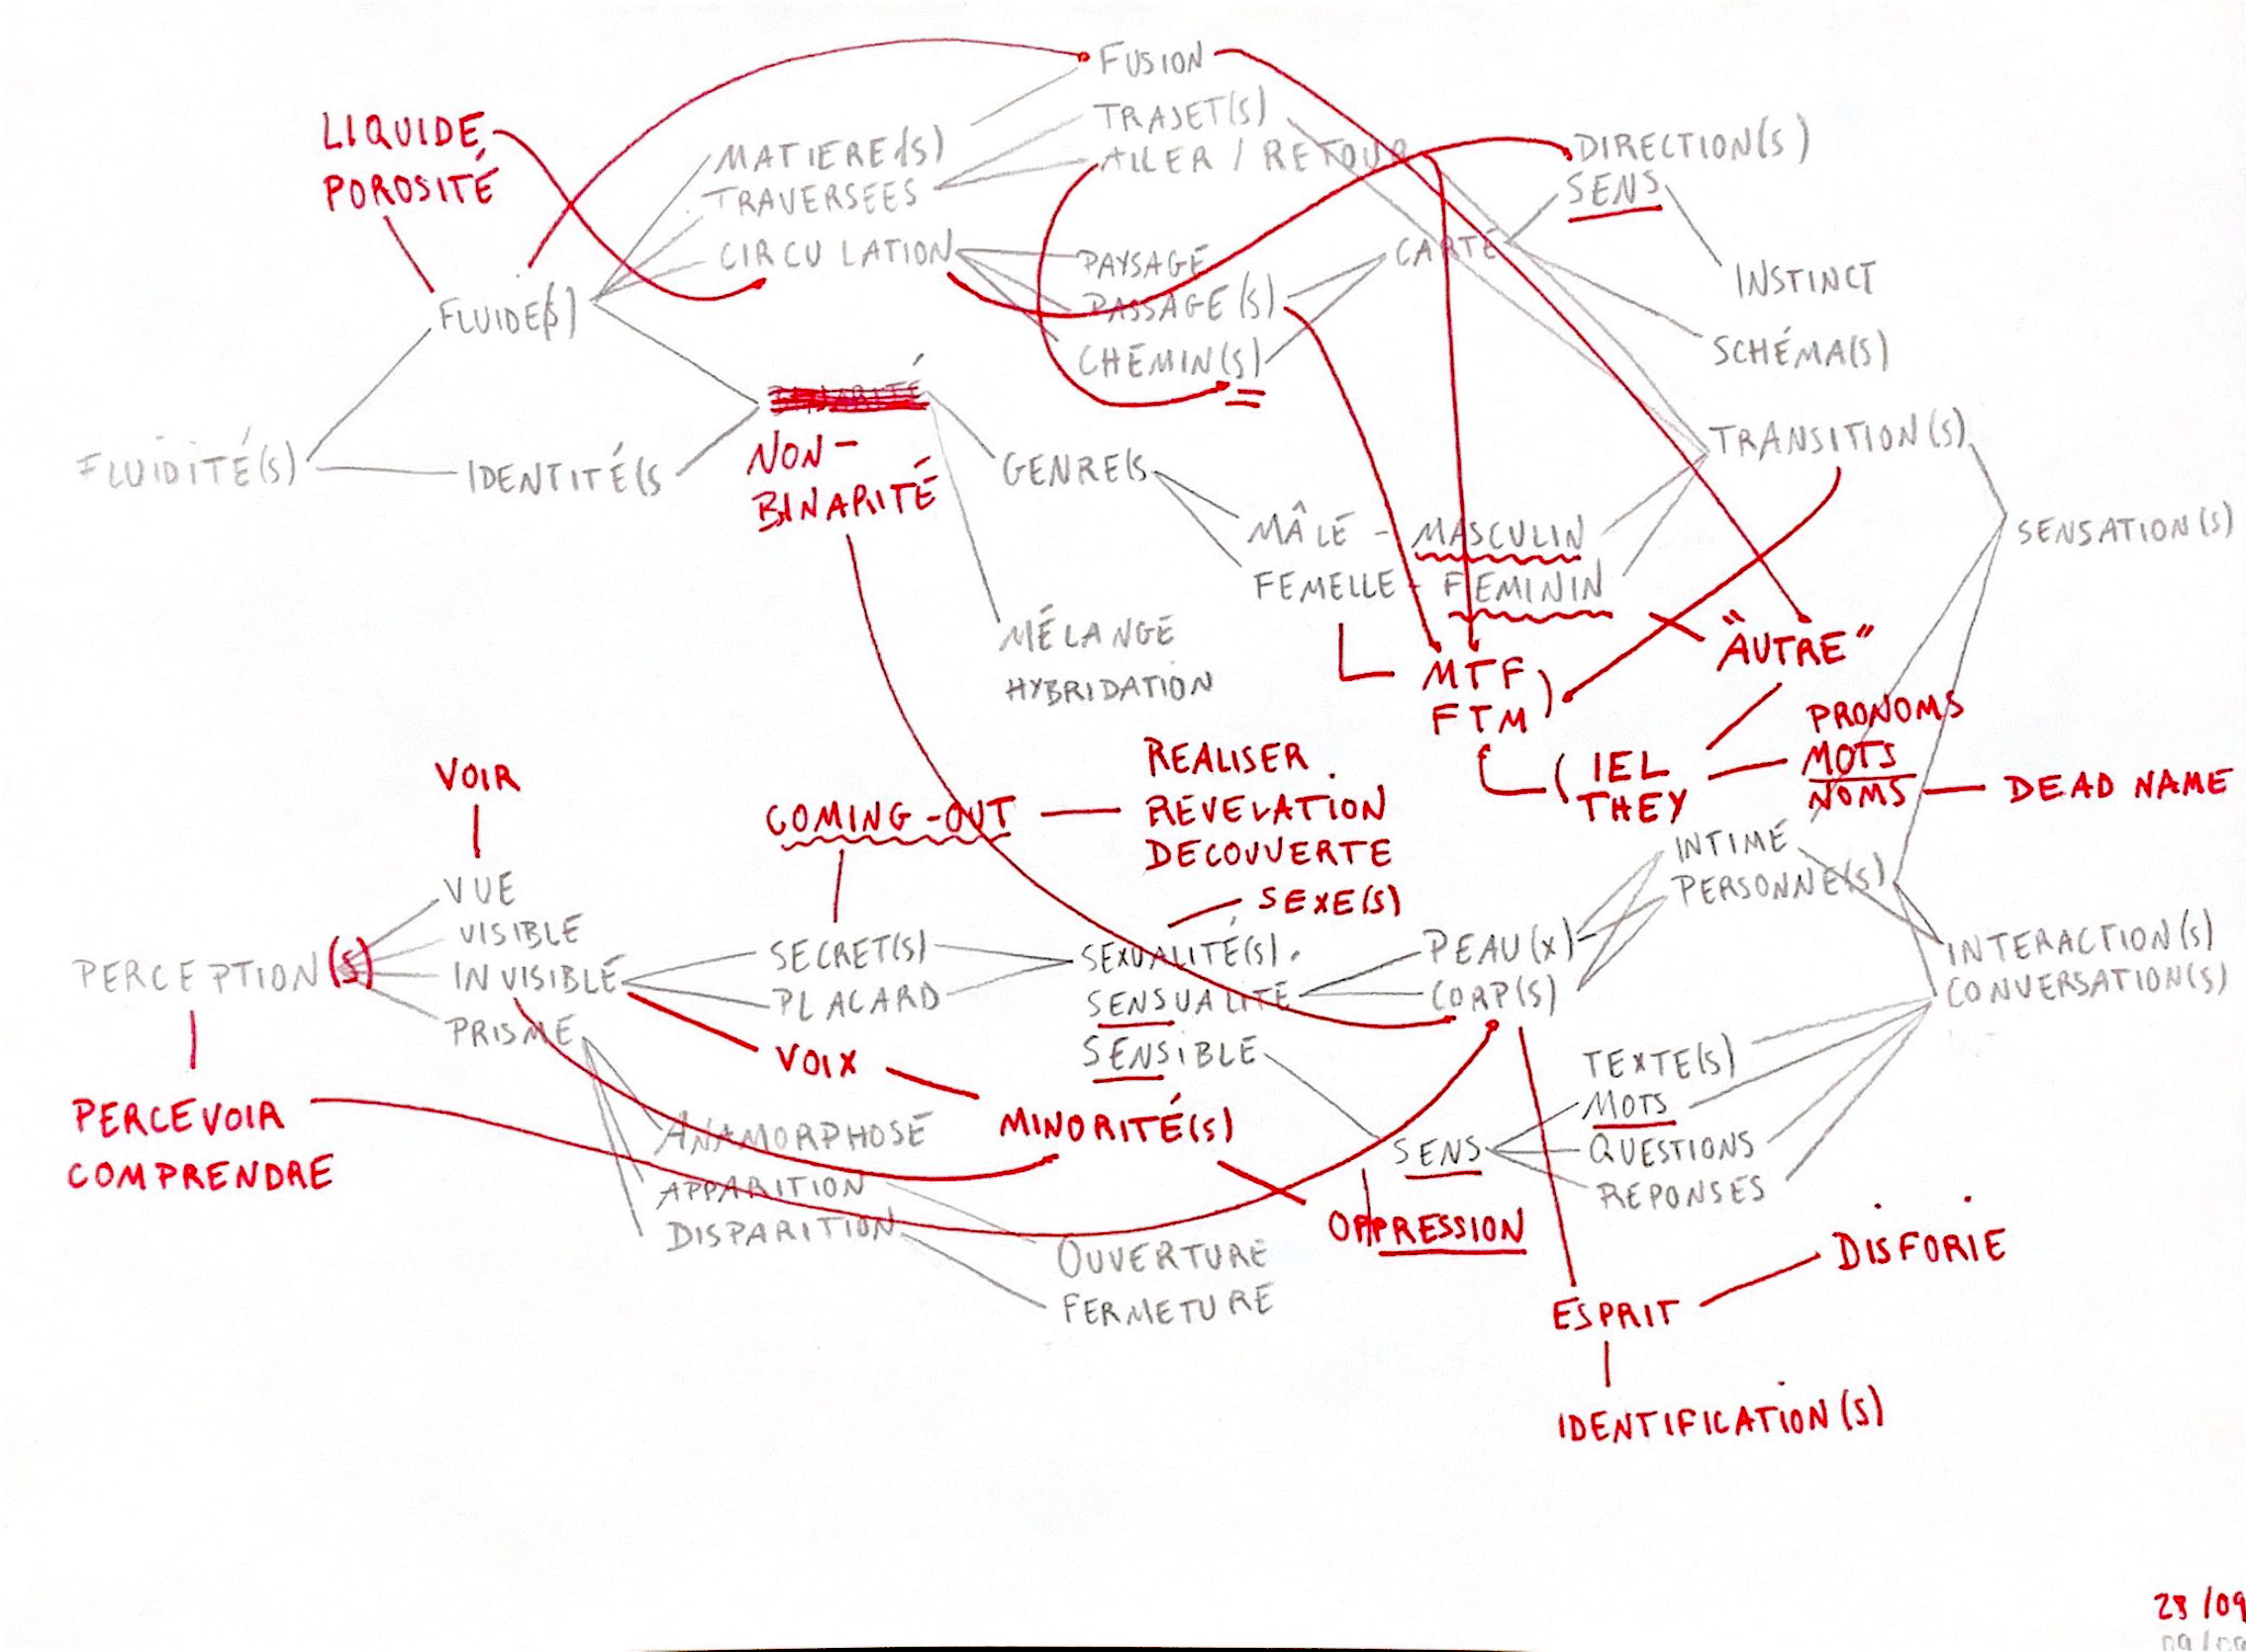 FUSION
TRAJET(S)
LIQUIDE
POROSITÉ
MATIERE(S)
TRAVERSEES
ALLER / RETOUR
DIRECTION(S)
SENS
CIRCULATION
PAYSAGE
PASSAGE(S)
CHEMIN(S)
CARTE
INSTINCT
SCHÉMA(S)
FLUIDE(S)
NON-
BINARITÉ
FLUIDITÉ(S)
IDENTITÉ(S
GENRE(S
TRANSITION(S)
SENSATION(S)
MÂLE - MASCULIN
FEMELLE - FEMININ
MÉLANGE
HYBRIDATION
MTF
FTM
"AUTRE"
IEL
THEY
PRONOMS
MOTS
NOMS
DEAD NAME
VOIR
COMING-OUT
REALISER
REVELATION
DECOUVERTE
SEXE(S)
INTIME
PERSONNE(S)
VUE
VISIBLE
INVISIBLE
PRISME
PERCEPTION(S)
SECRET(S)
PLACARD
SEXUALITÉ(S)
SENSUALITE
SENSIBLE
PEAU(X)
CORP(S)
INTERACTION(S)
CONVERSATION(S)
VOIX
MINORITÉ(S)
PERCEVOIR
COMPRENDRE
ANAMORPHOSE
APPARITION
DISPARITION
OUVERTURE
FERMETURE
SENS
TEXTE(S)
MOTS
QUESTIONS
REPONSES
OPPRESSION
ESPRIT
DISFORIE
IDENTIFICATION(S)